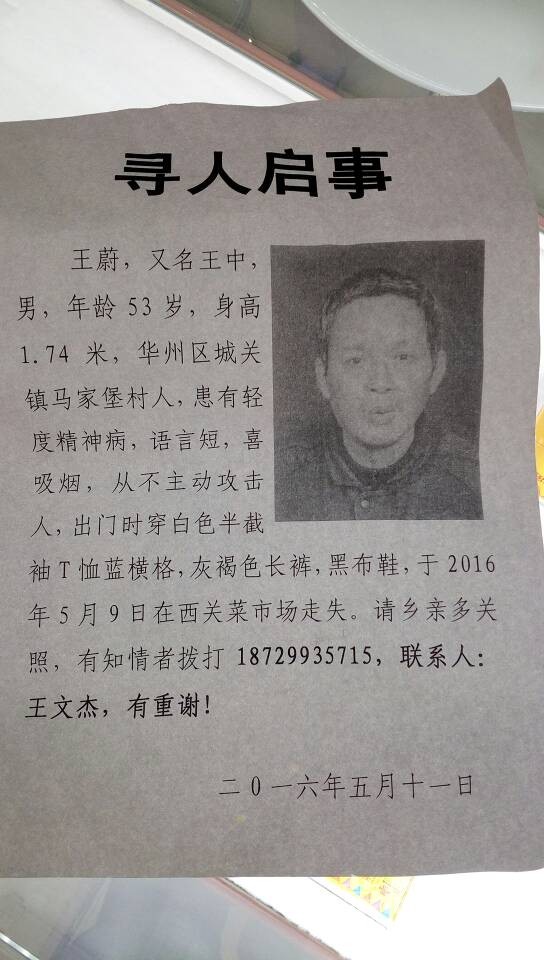 寻人启事
王蔚，又名王中，
男，年龄 53 岁，身高
1.74 米，华州区城关
镇马家堡村人，患有轻
度精神病，语言短，喜
吸烟，从不主动攻击
人，出门时穿白色半截
袖T恤蓝横格，灰褐色长裤，黑布鞋，于 2016
年 5 月 9 日在西关菜市场走失。请乡亲多关
照，有知情者拨打 18729935715，联系人：
王文杰，有重谢！
二0一六年五月十一日